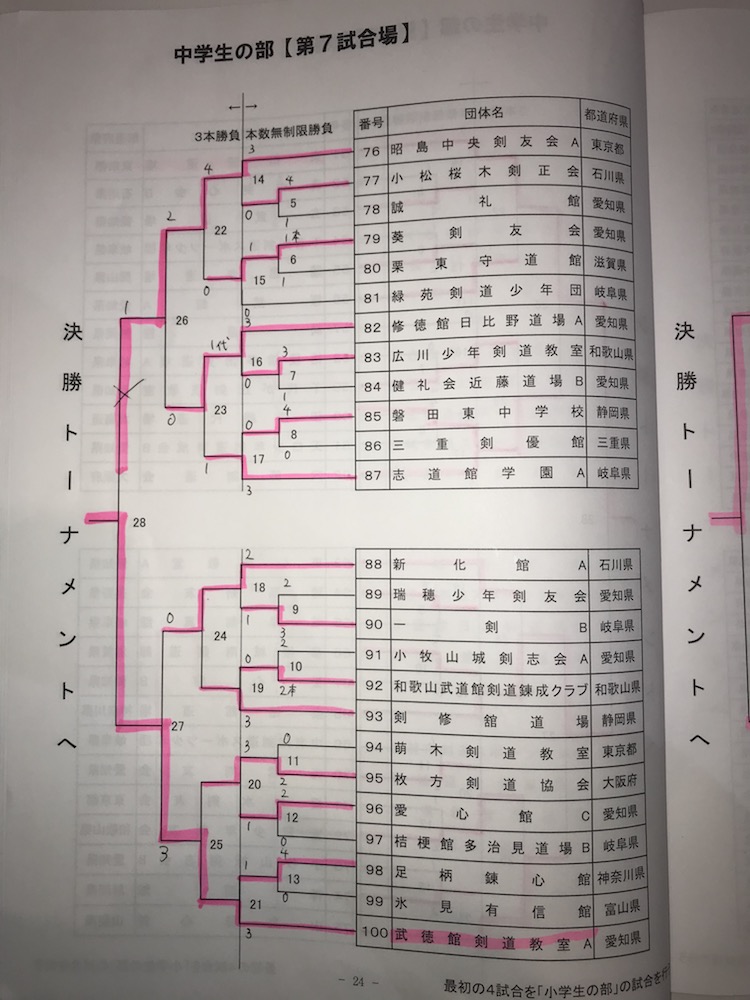 中学生の部【第7試合場】
←│→
3本勝負 本数無制限勝負
番号 団体名 都道府県
76 昭島中央剣友会A 東京都
77 小松桜木剣正会 石川県
78 誠礼館 愛知県
79 葵剣友会 愛知県
80 栗東守道館 滋賀県
81 緑苑剣道少年団 岐阜県
82 修徳館日比野道場A 愛知県
83 広川少年剣道教室 和歌山県
84 健礼会近藤道場B 愛知県
85 磐田東中学校 静岡県
86 三重剣優館 三重県
87 志道館学園A 岐阜県
3
4
14
4
5
0
1
2
22
1
1本
6
15
1
0
0
1
26
3
1代
16
3
7
0
1
0
23
4
0
8
17
0
1
3
決勝トーナメントへ
28
88 新化館A 石川県
89 瑞穂少年剣友会 愛知県
90 一剣B 岐阜県
91 小牧山城剣志会A 愛知県
92 和歌山武道館剣道錬成クラブ 和歌山県
93 剣修舘道場 静岡県
94 萌木剣道教室 東京都
95 枚方剣道協会 大阪府
96 愛心館C 愛知県
97 桔梗館多治見道場B 岐阜県
98 足柄錬心館 神奈川県
99 氷見有信館 富山県
100 武徳館剣道教室A 愛知県
2
18
2
9
1
3
0
24
2
0
10
19
2本
3
27
3
0
11
20
2
2
12
1
0
3
25
4
1
13
21
0
3
決勝トーナメントへ
- 24 -
最初の4試合を「小学生の部」の試合を行